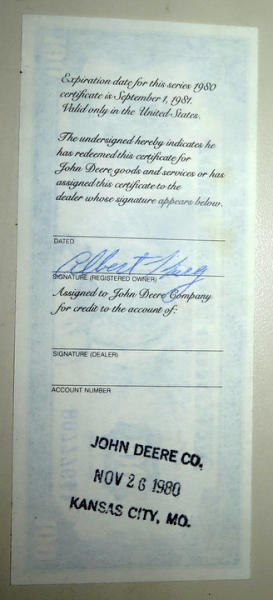 Expiration date for this series 1980
certificate is September 1, 1981.
Valid only in the United States.
The undersigned hereby indicates he
has redeemed this certificate for
John Deere goods and services or has
assigned this certificate to the
dealer whose signature appears below.
DATED
Albert
SIGNATURE (REGISTERED OWNER)
Assigned to John Deere Company
for credit to the account of:
SIGNATURE (DEALER)
ACCOUNT NUMBER
JOHN DEERE CO.
NOV 26 1980
KANSAS CITY, MO.